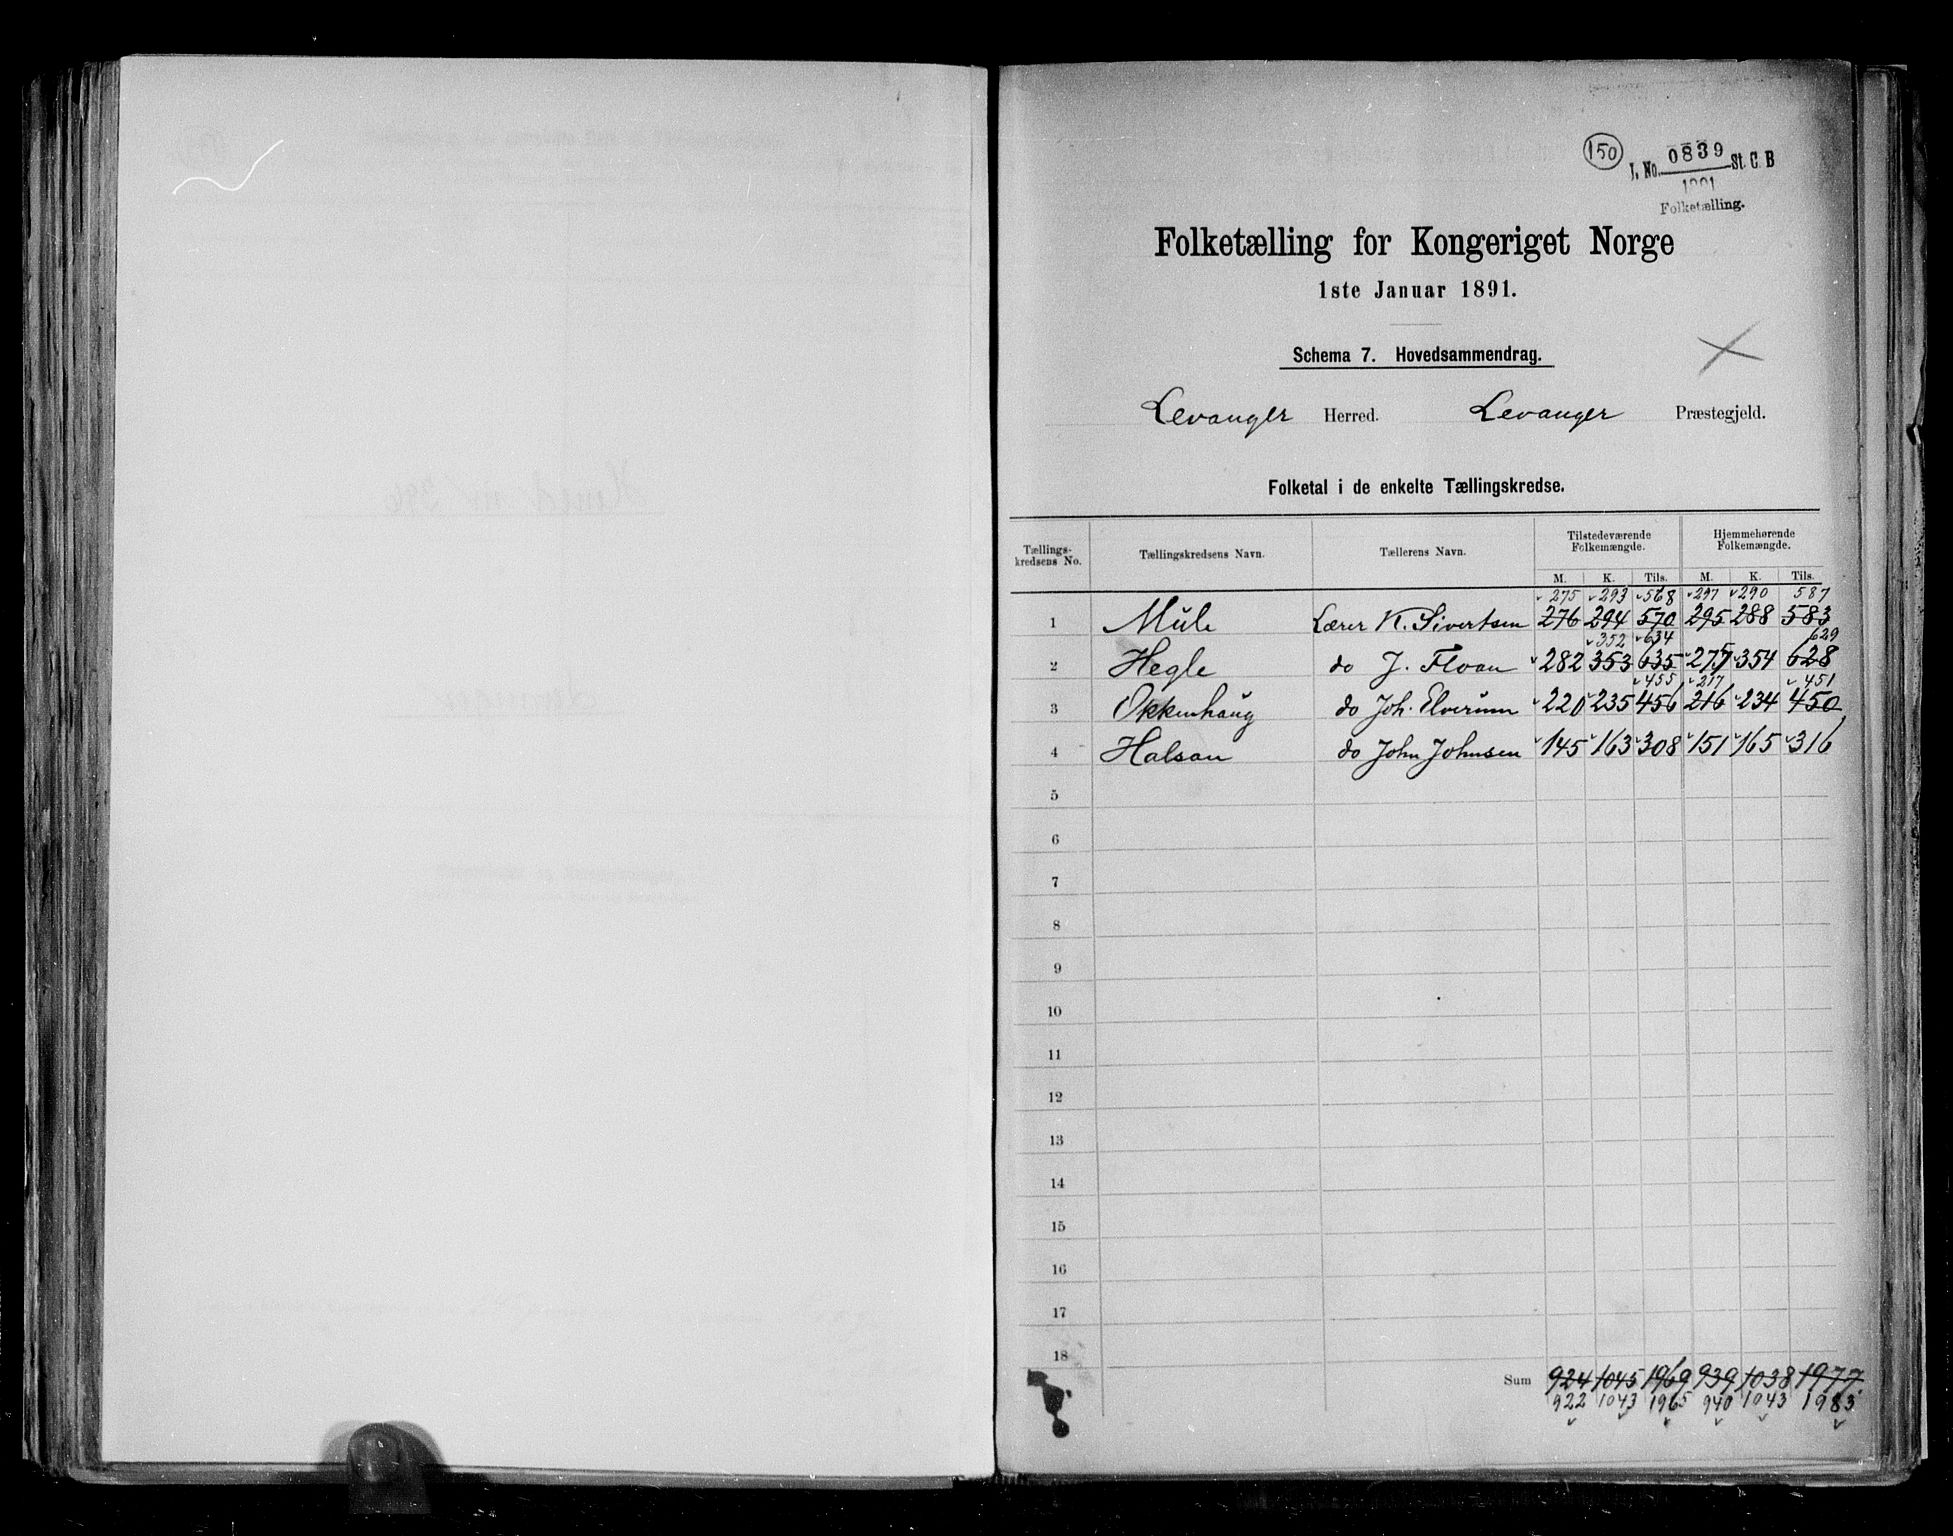 150
J. No. 0839 St. C. B
1891
Folketælling.
Folketælling for Kongeriget Norge
1ste Januar 1891.
Schema 7. Hovedsammendrag.
Levanger Herred. Levanger Præstegjeld.
Folketal i de enkelte Tællingskredse.
Tællings-kredsens No. Tællingskredsens Navn. Tællerens Navn. Tilstedeværende Folkemængde. Hjemmehørende Folkemængde.
M. K. Tils. M. K. Tils.
275 293 568 297 290 587
1 Mule Lærer K. Sivertsen 276 294 570 295 288 583
352 634 5 629
2 Hegle do J. Floan 282 353 635 277 354 628
455 217 451
3 Okkenhaug do Joh. Elverum 220 235 456 216 234 450
4 Halsan do John Johnsen 145 163 308 151 165 316
5
6
7
8
9
10
11
12
13
14
15
16
17
18
Sum 924 1045 1969 939 1038 1977.
922 1043 1965 940 1043 1983